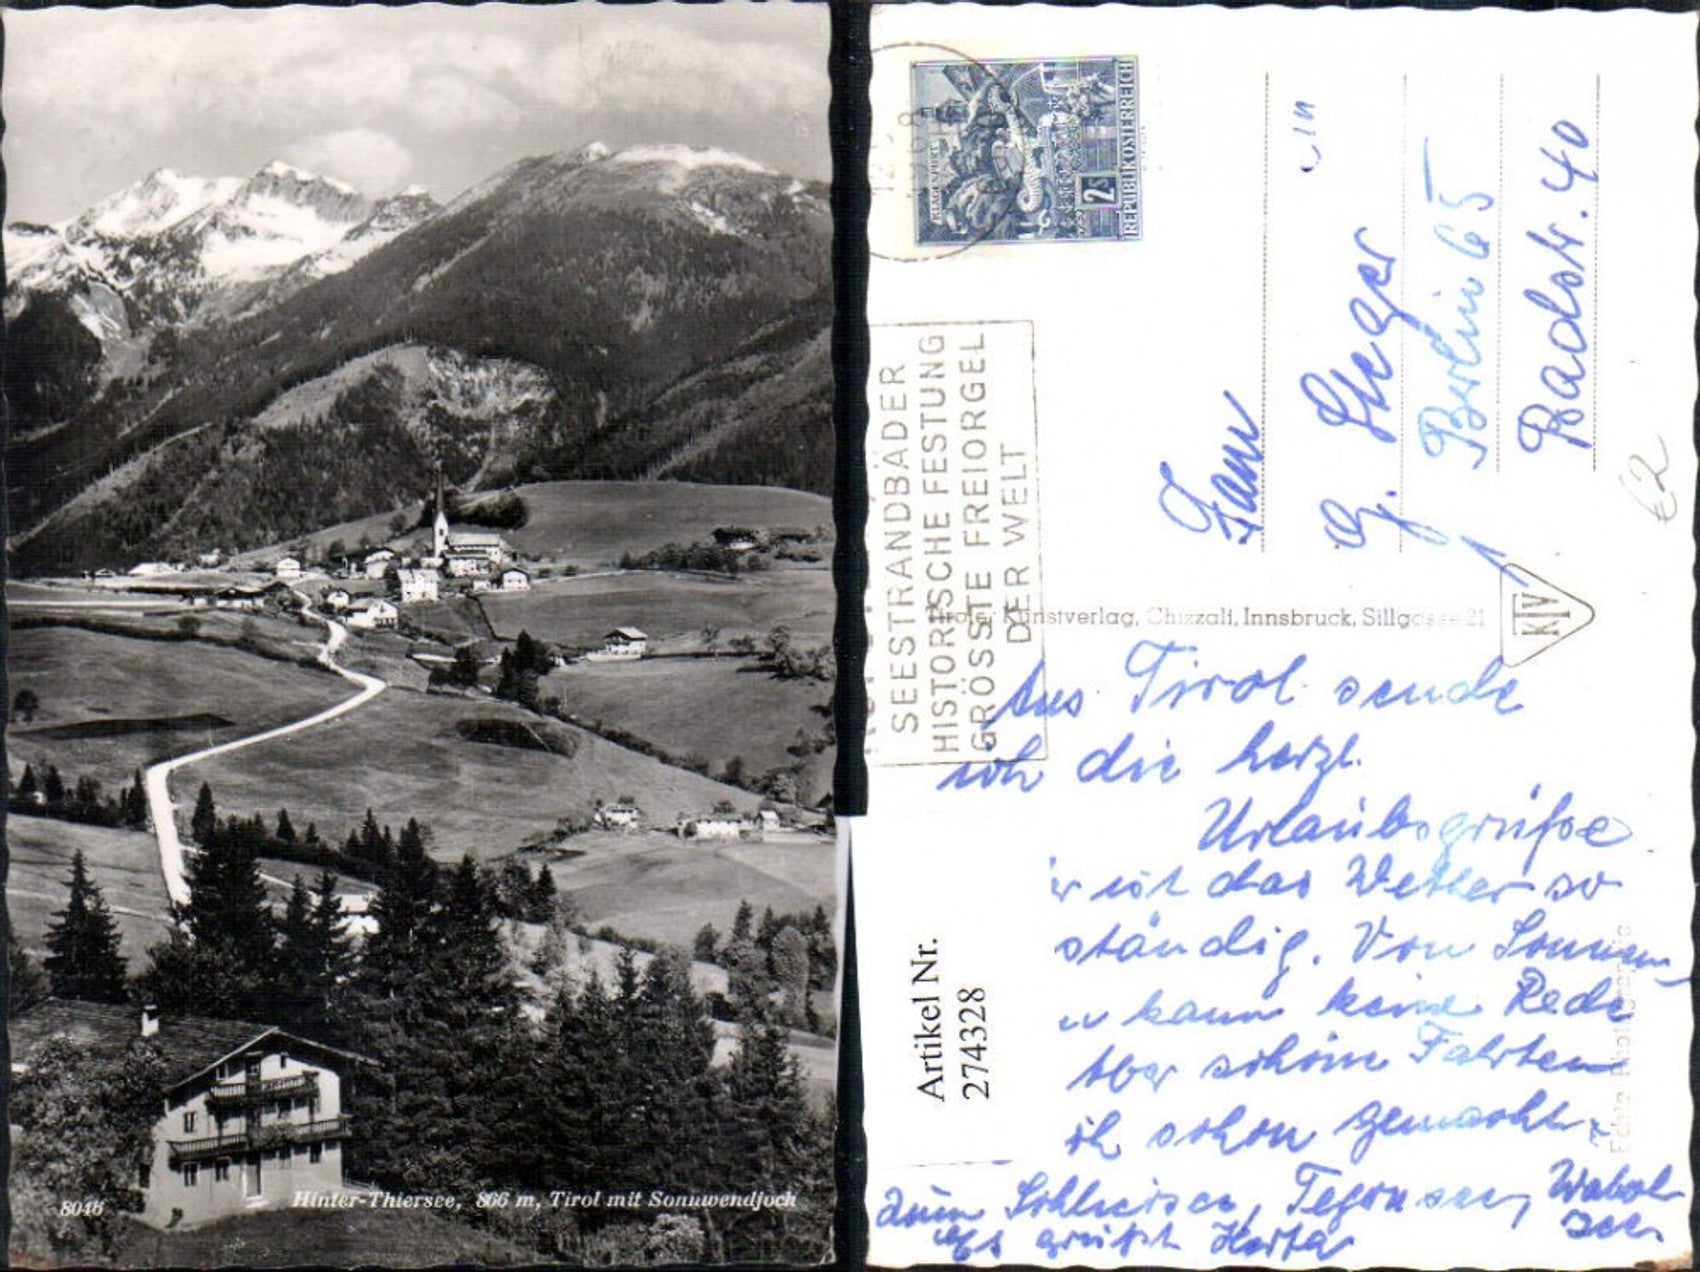 8046
Hinter-Thiersee, 866 m, Tirol mit Sonnwendjoch
KLAGENFURT
2S
REPUBLIK OSTERREICH
SEESTRANDBÄDER
HISTORISCHE FESTUNG
GRÖSSTE FREIORGEL
DER WELT
Frau
G. Steger
1 Berlin 65
Badstr. 40
€2
Tiroler Kunstverlag, Chizzali, Innsbruck, Sillgasse 21
KTV
Artikel Nr.
274328
Aus Tirol sende
ich die herzl.
Urlaubsgrüße
ist das Wetter so
ständig. Von Sonnen-
kann keine Rede
Aber schöne Fahrten
ich schon gemacht.
zum Schliersee, Tegernsee,
Es grüßt Herta